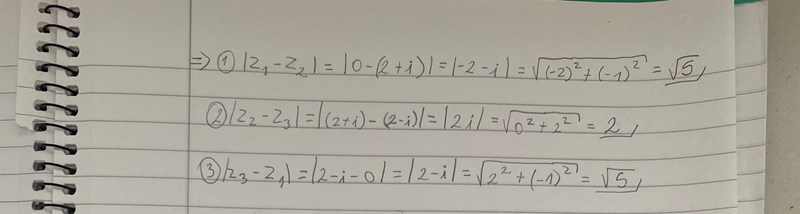 ⇒ ① |z₁ - z₂| = |0-(2+i)| = |-2-i| = √((-2)²+(-1)²) = √5,
② |z₂ - z₃| = |(2+i) - (2-i)| = |2i| = √(0²+2²) = 2,
③ |z₃ - z₁| = |2-i-0| = |2-i| = √(2²+(-1)²) = √5,